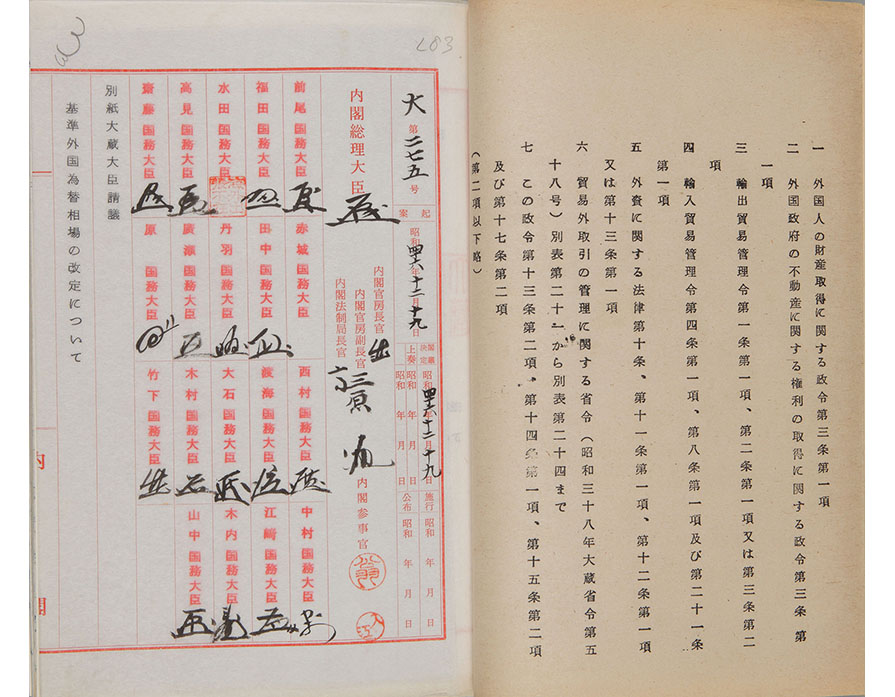 一 外国人の財産取得に関する政令第三条第一項
二 外国政府の不動産に関する権利の取得に関する政令第三条 第
一項
三 輸出貿易管理令第一条第一項、第二条第一項又は第三条第二
項
四 輸入貿易管理令第四条第一項、第八条第一項及び第二十一条
第一項
五 外資に関する法律第十条、第十一条第一項、第十二条第一項
又は第十三条第一項
六 貿易外取引の管理に関する省令(昭和三十八年大蔵省令第五
十八号)別表第二十一から別表第二十四まで
七 この政令第十三条第二項、第十四条第一項、第十五条第二項
及び第十七条第二項
(第二項以下略)
283
大第二七五号
起案 昭和四六年十二月十九日
閣議決定 昭和四六年十二月十九日
上奏 昭和 年 月 日
施行 昭和 年 月 日
公布 昭和 年 月 日
内閣総理大臣
内閣官房長官
内閣官房副長官
内閣法制局長官
内閣参事官
前尾国務大臣
赤城国務大臣
西村国務大臣
中村国務大臣
福田国務大臣
田中国務大臣
渡海国務大臣
江﨑国務大臣
水田国務大臣
丹羽国務大臣
大石国務大臣
木内国務大臣
高見国務大臣
廣瀬国務大臣
木村国務大臣
山中国務大臣
齋藤国務大臣
原国務大臣
竹下国務大臣
別紙大蔵大臣請議
基準外国為替相場の改定について
内
閣